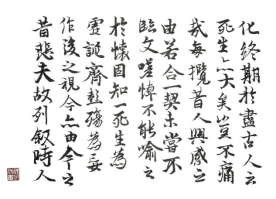 化終期於盡古人云
死生亦大矣豈不痛
哉每攬昔人興感之
由若合一契未嘗不
臨文嗟悼不能喻之
於懷固知一死生為
虛誕齊彭殤為妄
作後之視今亦由今之
昔悲夫故列敘時人